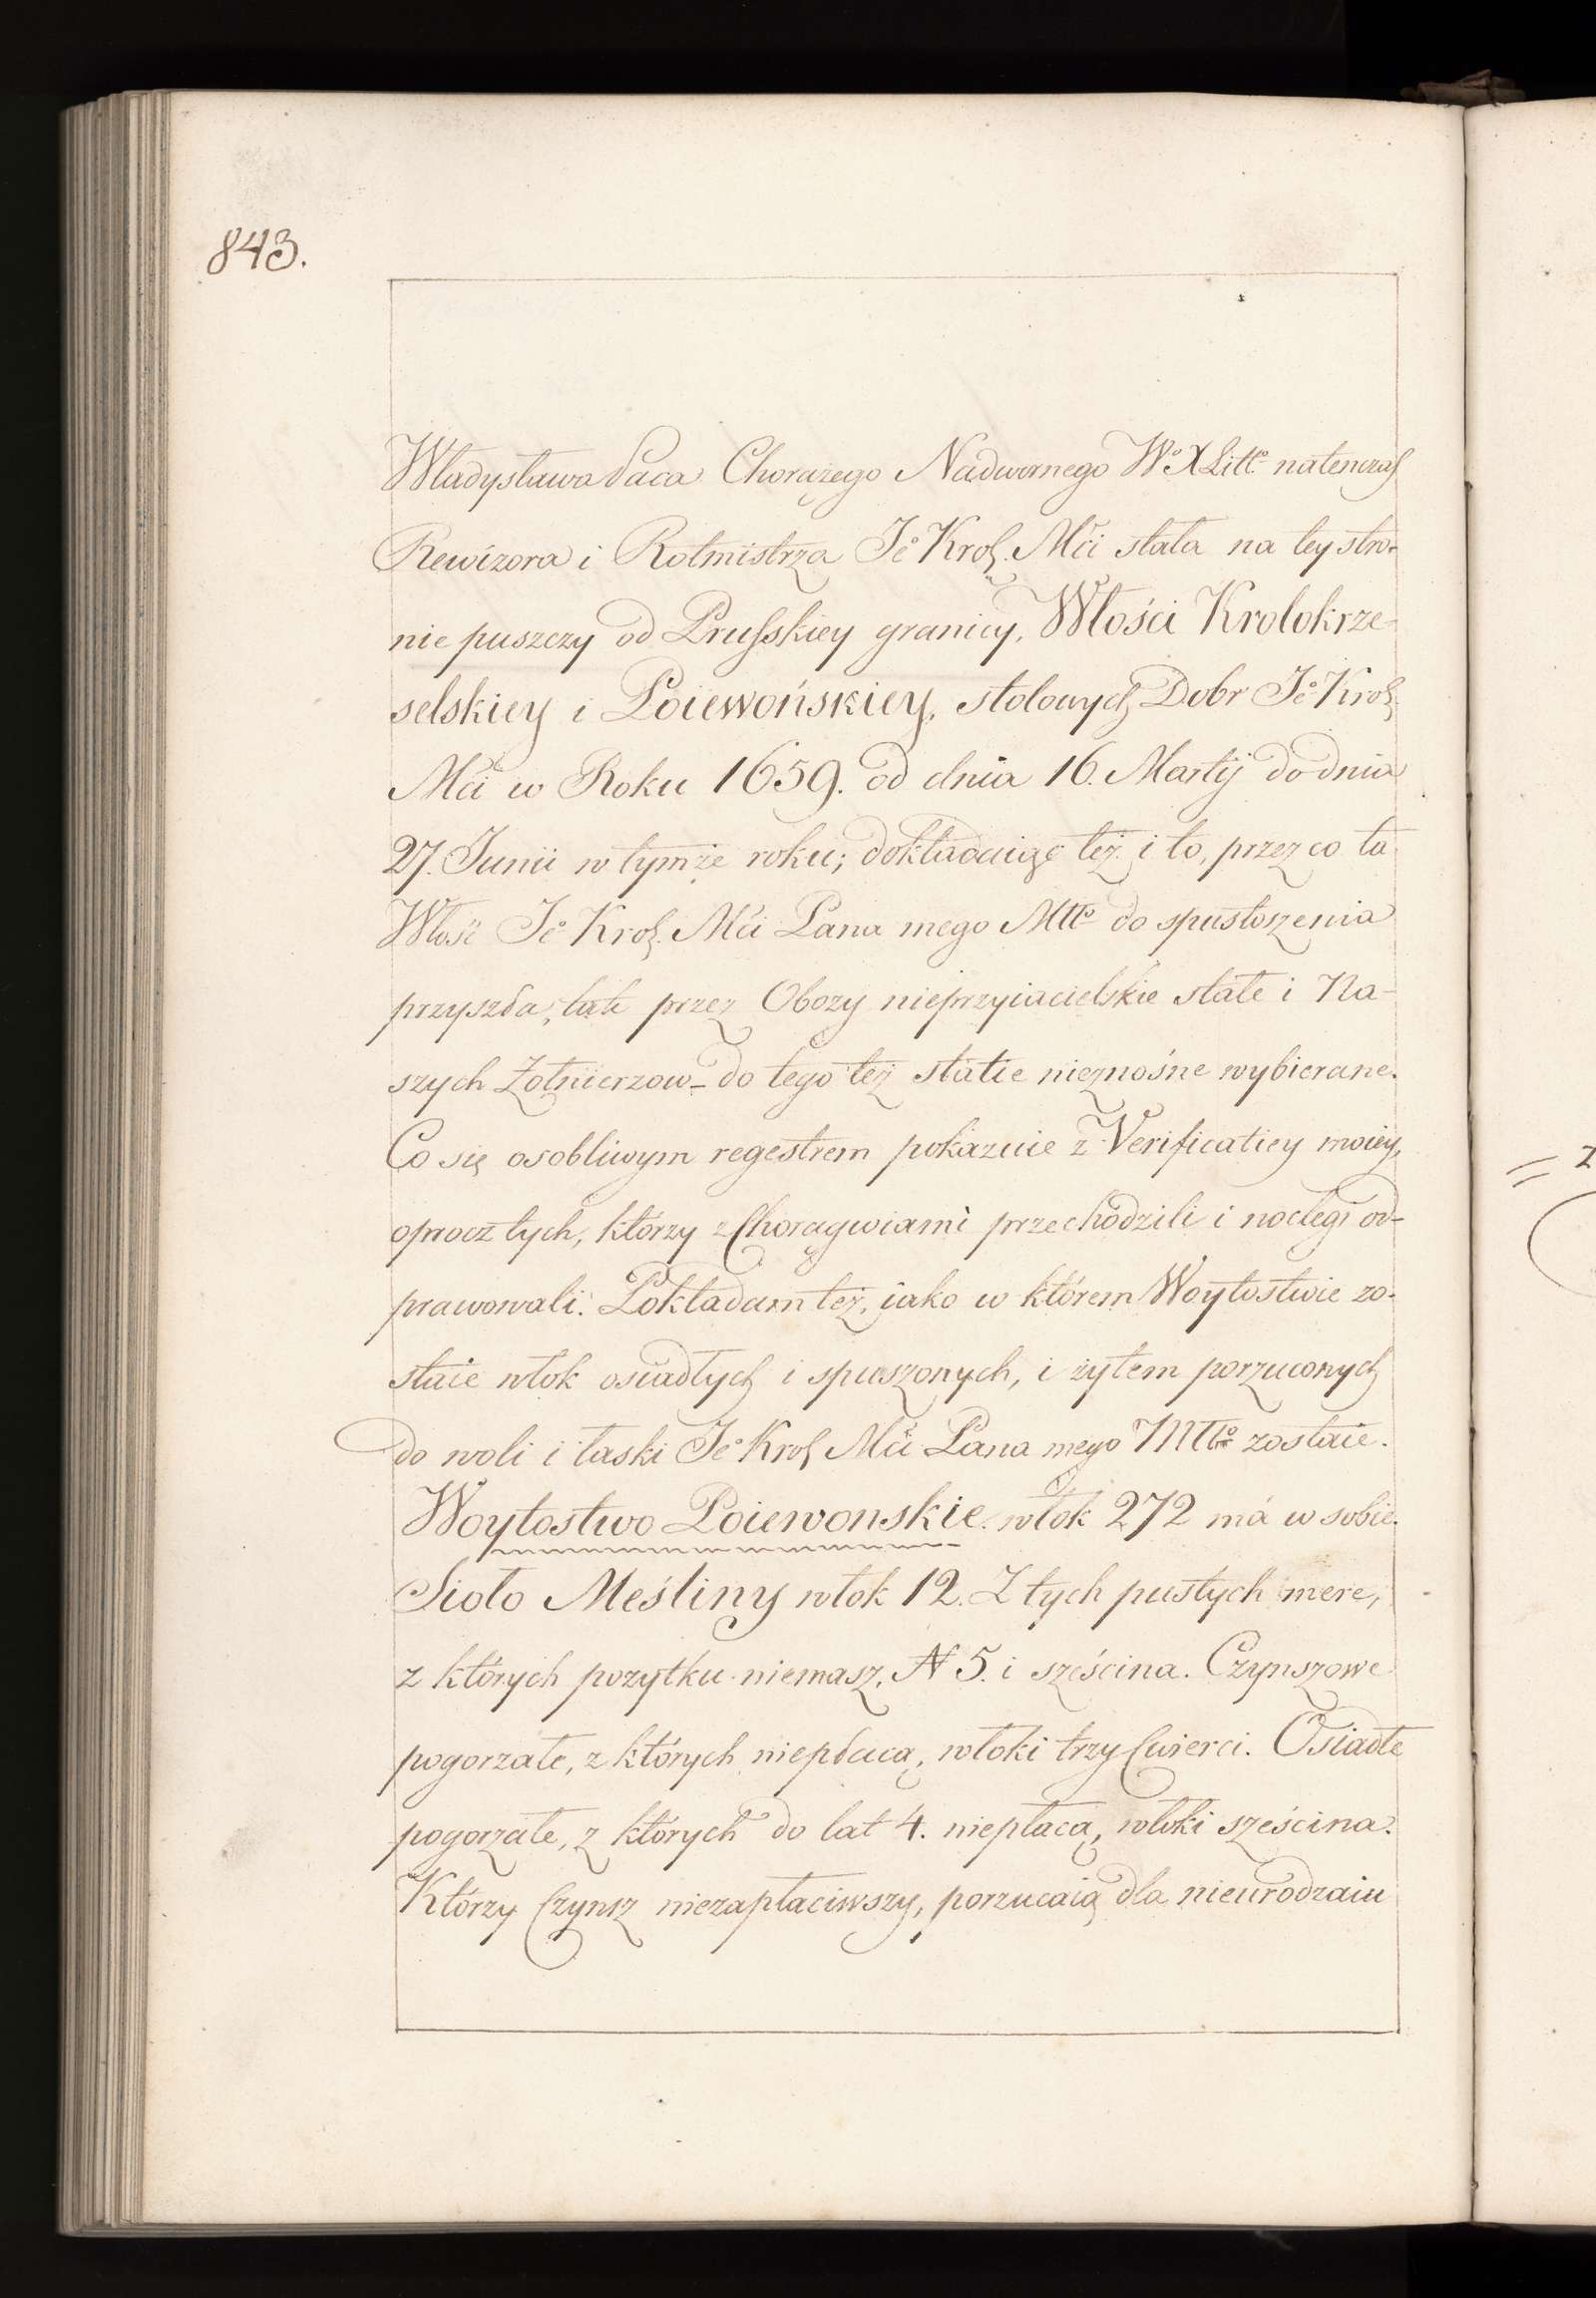 843.
Władysława Paca Chorążego Nadwornego Wº X Littº natenczas
Rewizora i Rotmistrza Jeº Krol. Mći stała na tey stro-
nie puszczy od Prusskiey granicy, Włości Krolokrze-
selskiey i Poiewońskiey, stołowych Dobr Jeº Krol.
Mći w Roku 1659. od dnia 16. Martij do dnia
27. Junii w tymże roku; dokładaiąc też i to, przez co ta
Włość Jeº Krol. Mći Pana mego Mttº do spustoszenia
przyszła, tak przez Obozy nieprzyiacielskie stałe i Na-
szych Żołnierzow – do tego też statie nieznośne wybierane.
Co się osobliwym regestrem pokazuie z Verificatiey moiey,
oprocz tych, którzy z Chorągwiami przechodzili i noclegi od-
prawowali. Pokładam też, iako w którem Woytostwie zo-
staie włok osiadłych i spuszonych, i żytem porzuconych
do woli i łaski Jeº Krol Mći Pana mego Mttº zostaie.
Woytostwo Poiewonskie. włok 272 má w sobie.
Sioło Meśliny włok 12. Z tych pustych mere,
z których pożytku niemasz, N 5. i sześcina. Czynszowe
pogorzałe, z których niepłacą, włoki trzy Cwierci. Osiadłe
pogorzałe, z których do lat 4. niepłacą, włoki sześcina.
Którzy Czynsz niezapłaciwszy, porzucaią dla nieurodzaiu
=